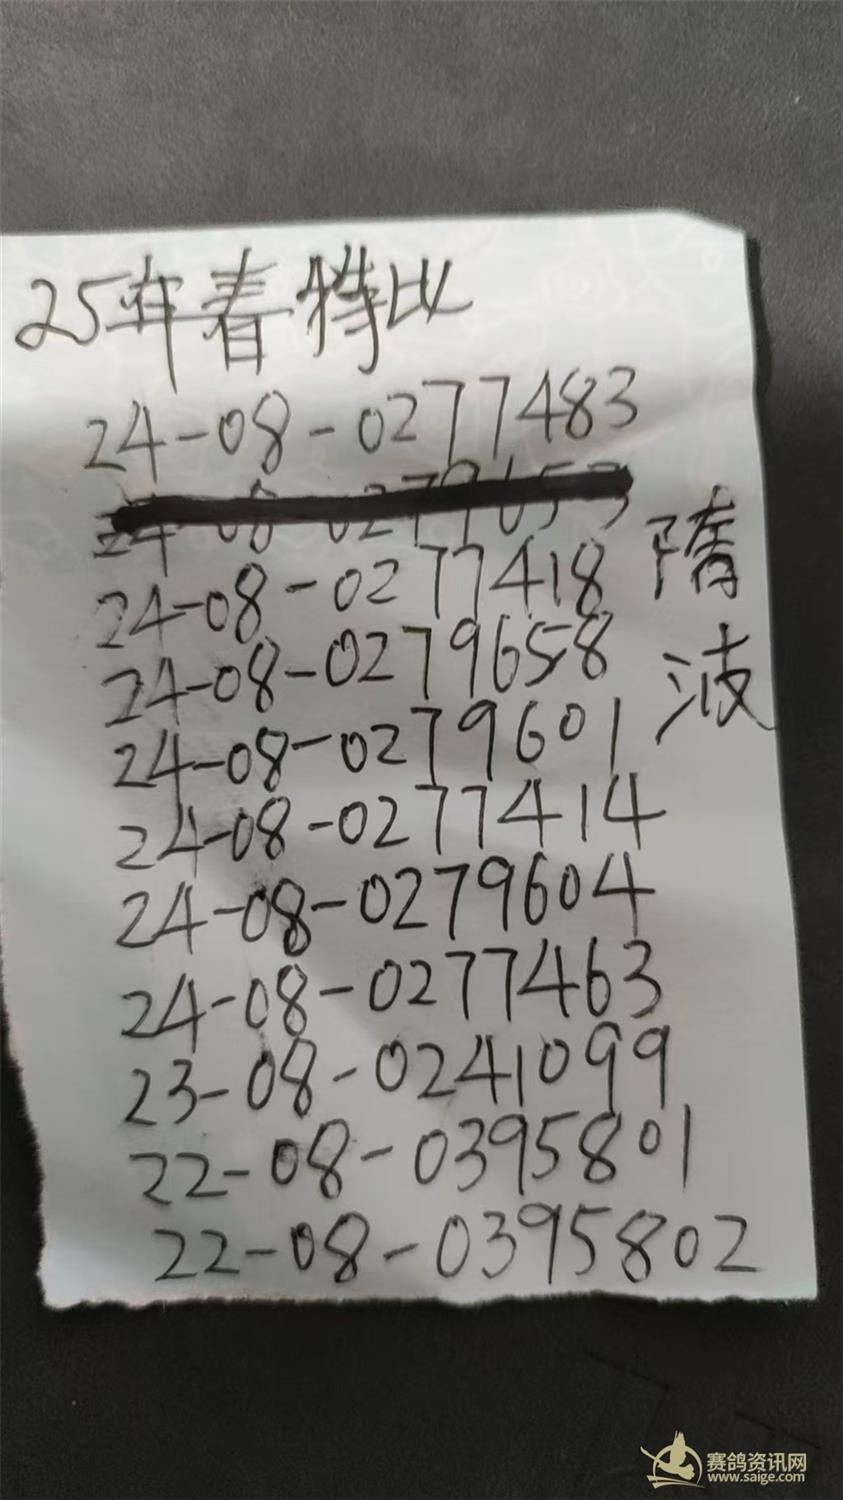 25年春特比
24-08-0277483
24-08-0277418
24-08-0279658
24-08-0279601
24-08-0277414
24-08-0279604
24-08-0277463
23-08-0241099
22-08-0395801
22-08-0395802
隋
波
赛鸽资讯网
www.saige.com